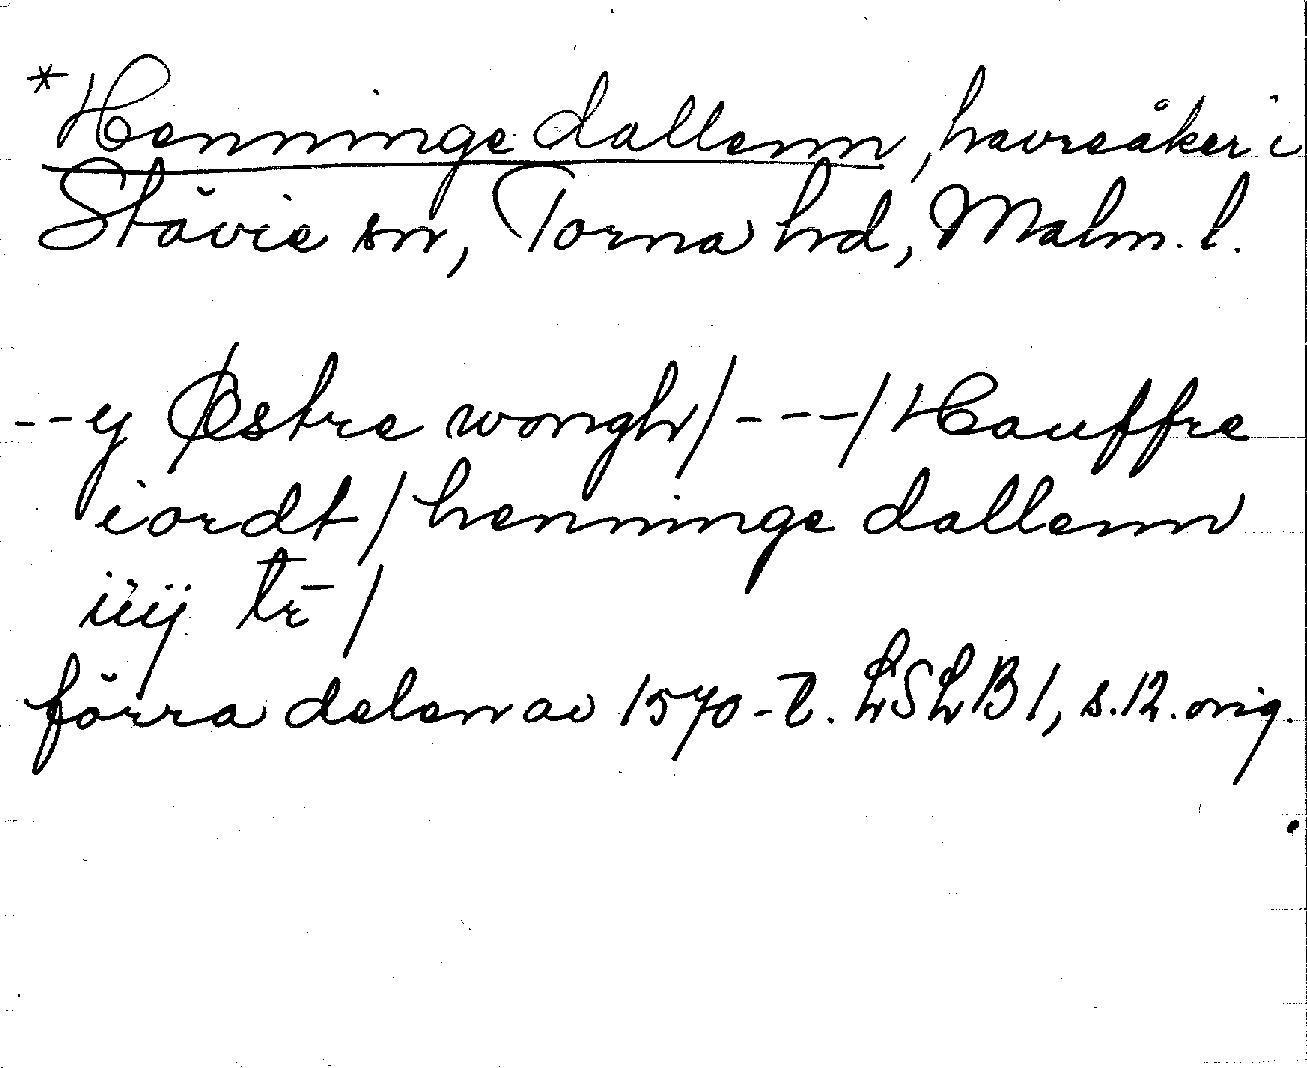 *Henninge dallenn, havreåker i
Stävie sn, Torna hd, Malm. l.
--y Østre wongh/---/Hauffre
iordt/henninge dallenn
iiij tr̄/
förra delen av 1570-t. LSLB1, s.12. orig.